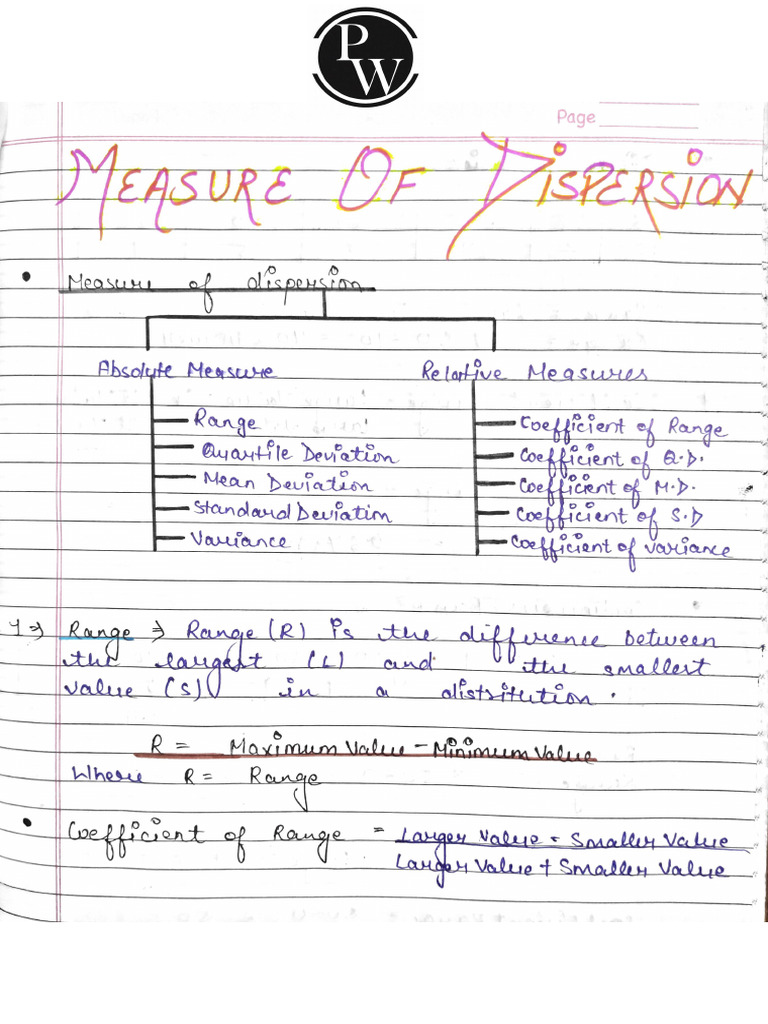 PW
Page
MEASURE OF DISPERSION
• Measure of dispersion
Absolute Measure
Range
Quartile Deviation
Mean Deviation
Standard Deviation
Variance
Relative Measures
Coefficient of Range
Coefficient of Q.D.
Coefficient of M.D.
Coefficient of S.D
Coefficient of variance
1⇒ Range ⇒ Range (R) is the difference between
the largest (L) and the smallest
value (S) in a distritution.
R = Maximum Value - Minimum Value
Where R = Range
• Coefficient of Range = Larger Value - Smaller Value
Larger Value + Smaller Value